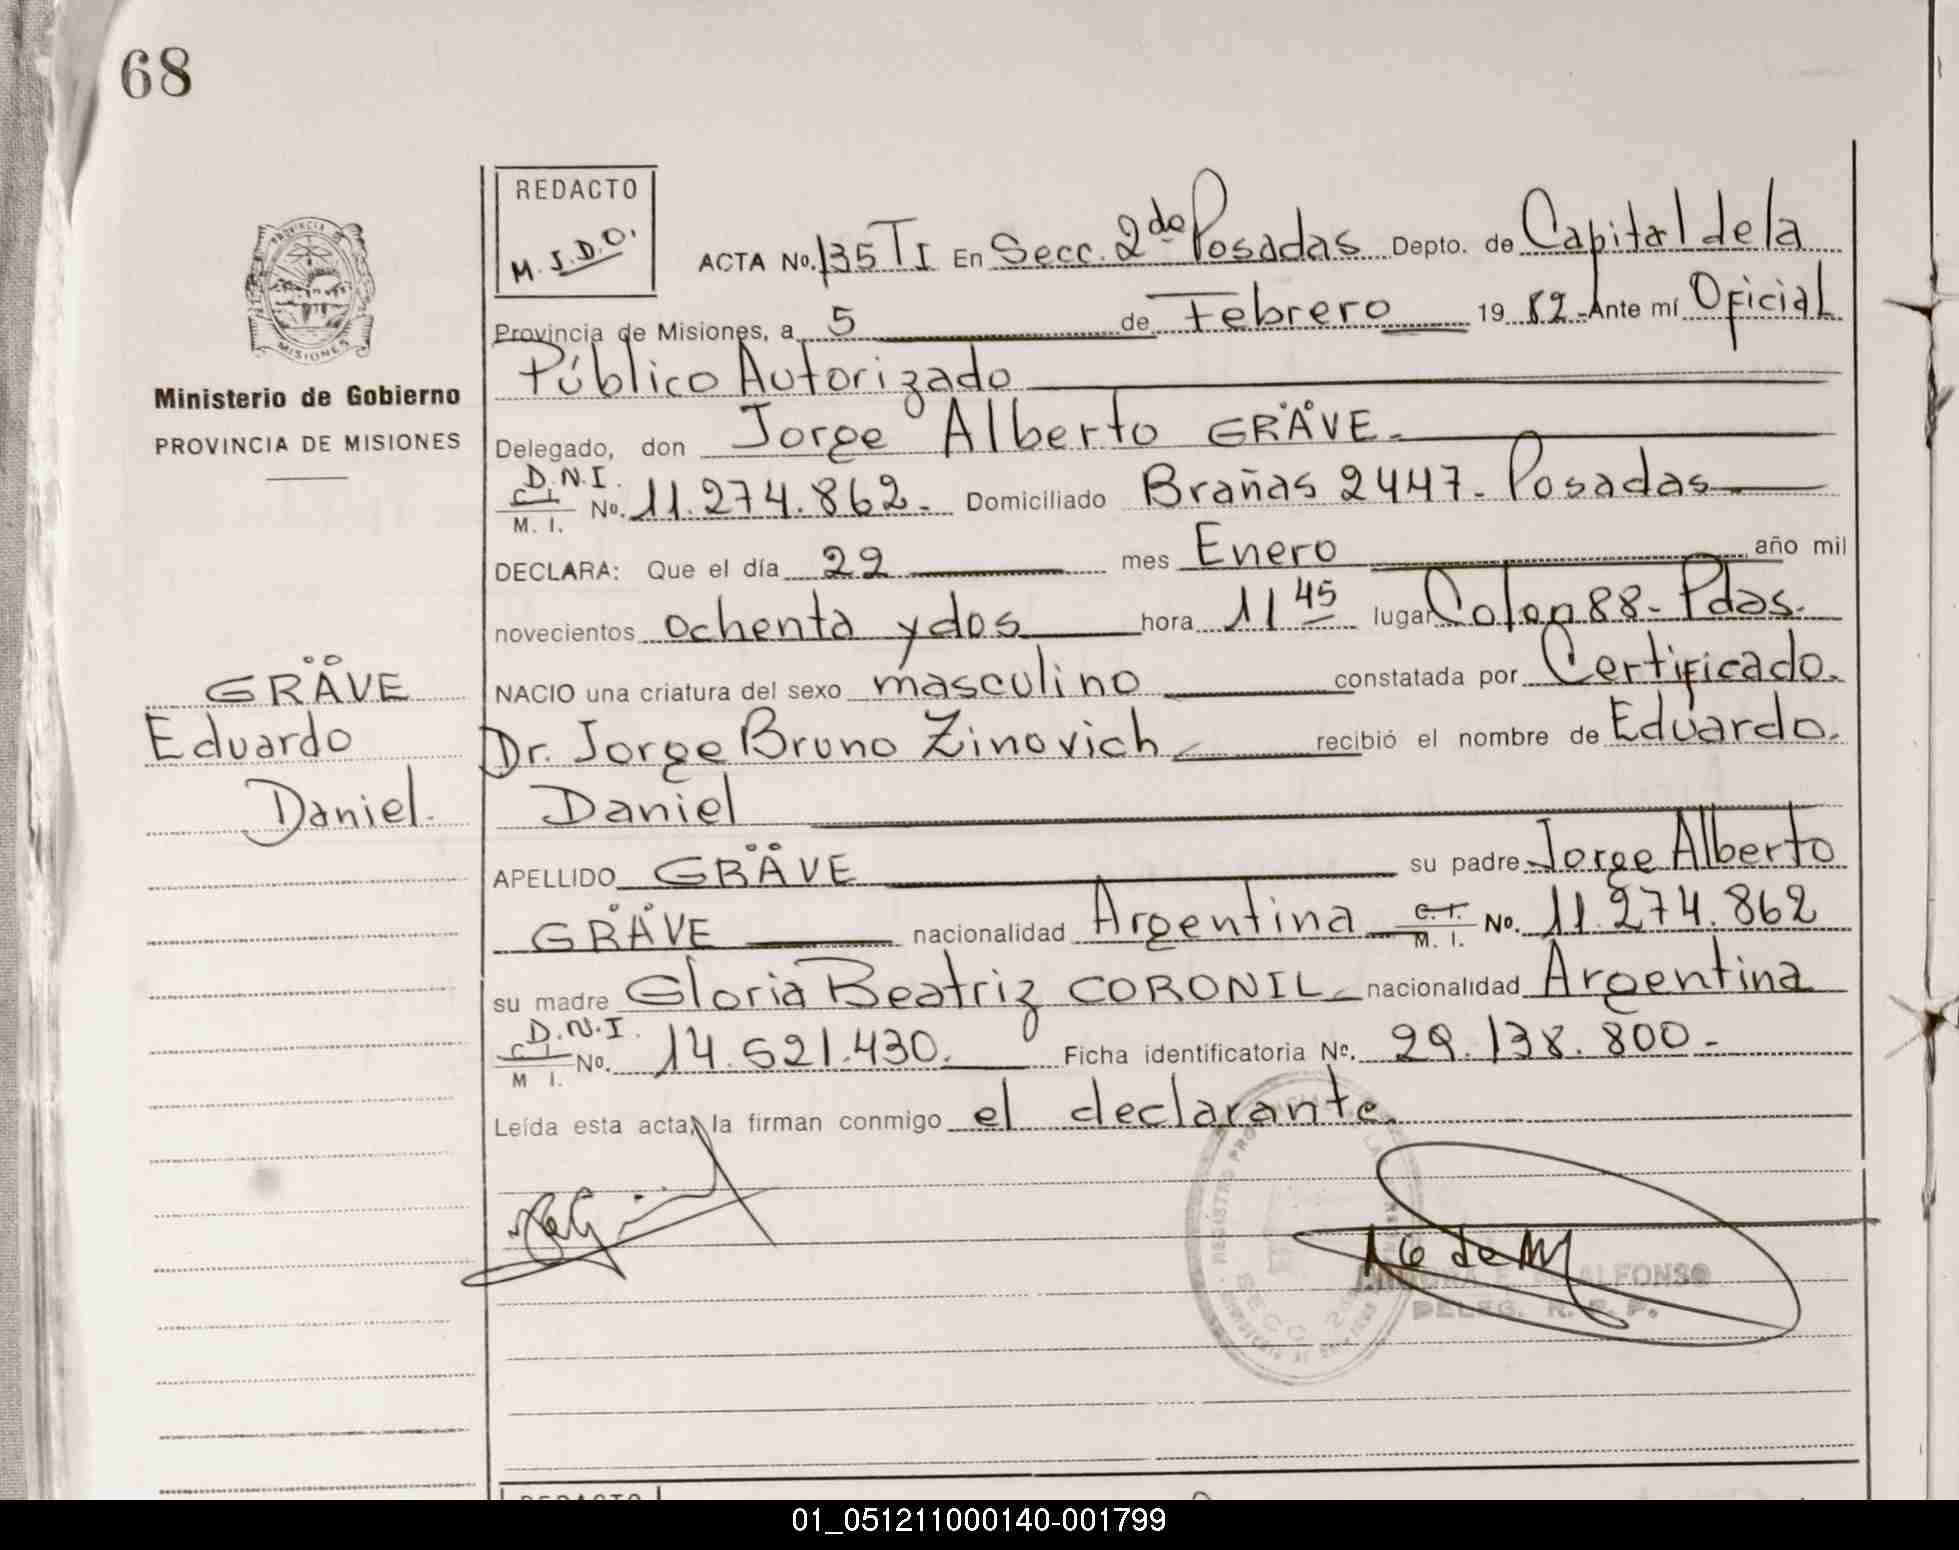 68
REDACTO
M.J.D.O.
ACTA No. 135 TI En Secc. 2da Posadas Depto. de Capital de la
Provincia de Misiones, a 5 de Febrero 1982.- Ante mí Oficial
Público Autorizado
PROVINCIA DE MISIONES
Ministerio de Gobierno
PROVINCIA DE MISIONES
Delegado, don Jorge Alberto GRÄVE.-
D.N.I.
C.I.
M. I. No. 11.274.862.- Domiciliado Brañas 2447- Posadas
DECLARA: Que el día 22 mes Enero año mil
novecientos ochenta y dos hora 11 45 lugar Colon 88- Pdas.
NACIO una criatura del sexo masculino constatada por Certificado.
Dr. Jorge Bruno Zinovich recibió el nombre de Eduardo.
Daniel
GRÄVE
Eduardo
Daniel.
APELLIDO GRÄVE su padre Jorge Alberto
GRÄVE nacionalidad Argentina C.I. M. I. No. 11.274.862
su madre Gloria Beatriz CORONIL nacionalidad Argentina
D.N.I.
C.I.
M I. No. 14.521.430. Ficha identificatoria No. 29.138.800-
Leída esta acta, la firman conmigo el declarante.
ALFONSO
DELEG. R. P. P.
REDACTO
01_051211000140-001799